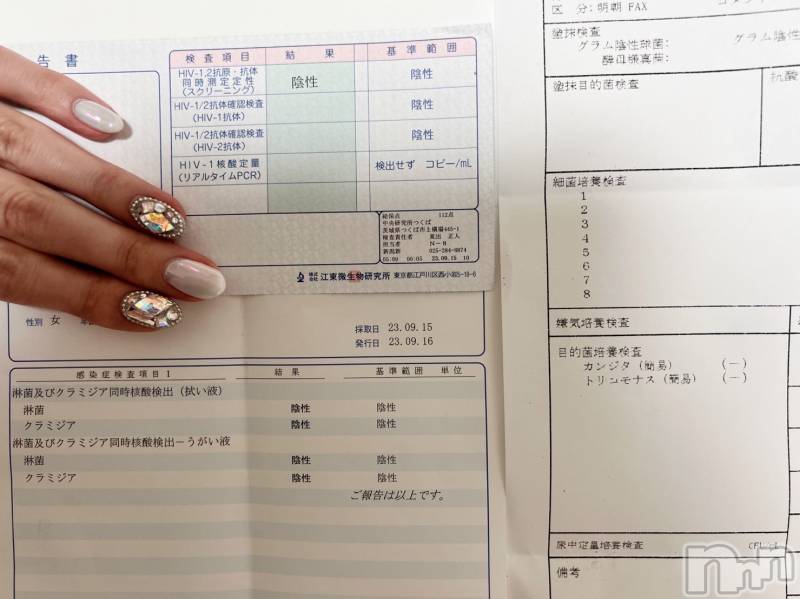 告書
検査項目 結果 基準範囲
HIV-1,2抗原・抗体
同時測定定性
(スクリーニング)
陰性 陰性
HIV-1/2抗体確認検査
(HIV-1抗体)
陰性
HIV-1/2抗体確認検査
(HIV-2抗体)
陰性
HIV-1核酸定量
(リアルタイムPCR)
検出せず コピー/mL
総保点 112点
中央研究所つくば
茨城県つくば市上横場445-1
検査責任者 東出 正人
担当者 N-8
新潟新 025-284-8874
23.09.15 10
株式会社 江東微生物研究所 東京都江戸川区西小岩5-18-6
性別 女
採取日 23.09.15
発行日 23.09.16
感染症検査項目1 結果 基準範囲 単位
淋菌及びクラミジア同時核酸検出(拭い液)
淋菌 陰性 陰性
クラミジア 陰性 陰性
淋菌及びクラミジア同時核酸検出-うがい液
淋菌 陰性 陰性
クラミジア 陰性 陰性
ご報告は以上です。
区 分:明朝 FAX
塗抹検査
グラム陰性球菌: グラム陰性
酵母様真菌:
塗抹目的菌検査 抗酸
細菌培養検査
1
2
3
4
5
6
7
8
嫌気培養検査
目的菌培養検査
カンジタ(簡易) (-)
トリコモナス(簡易) (-)
尿中定量培養検査
備考